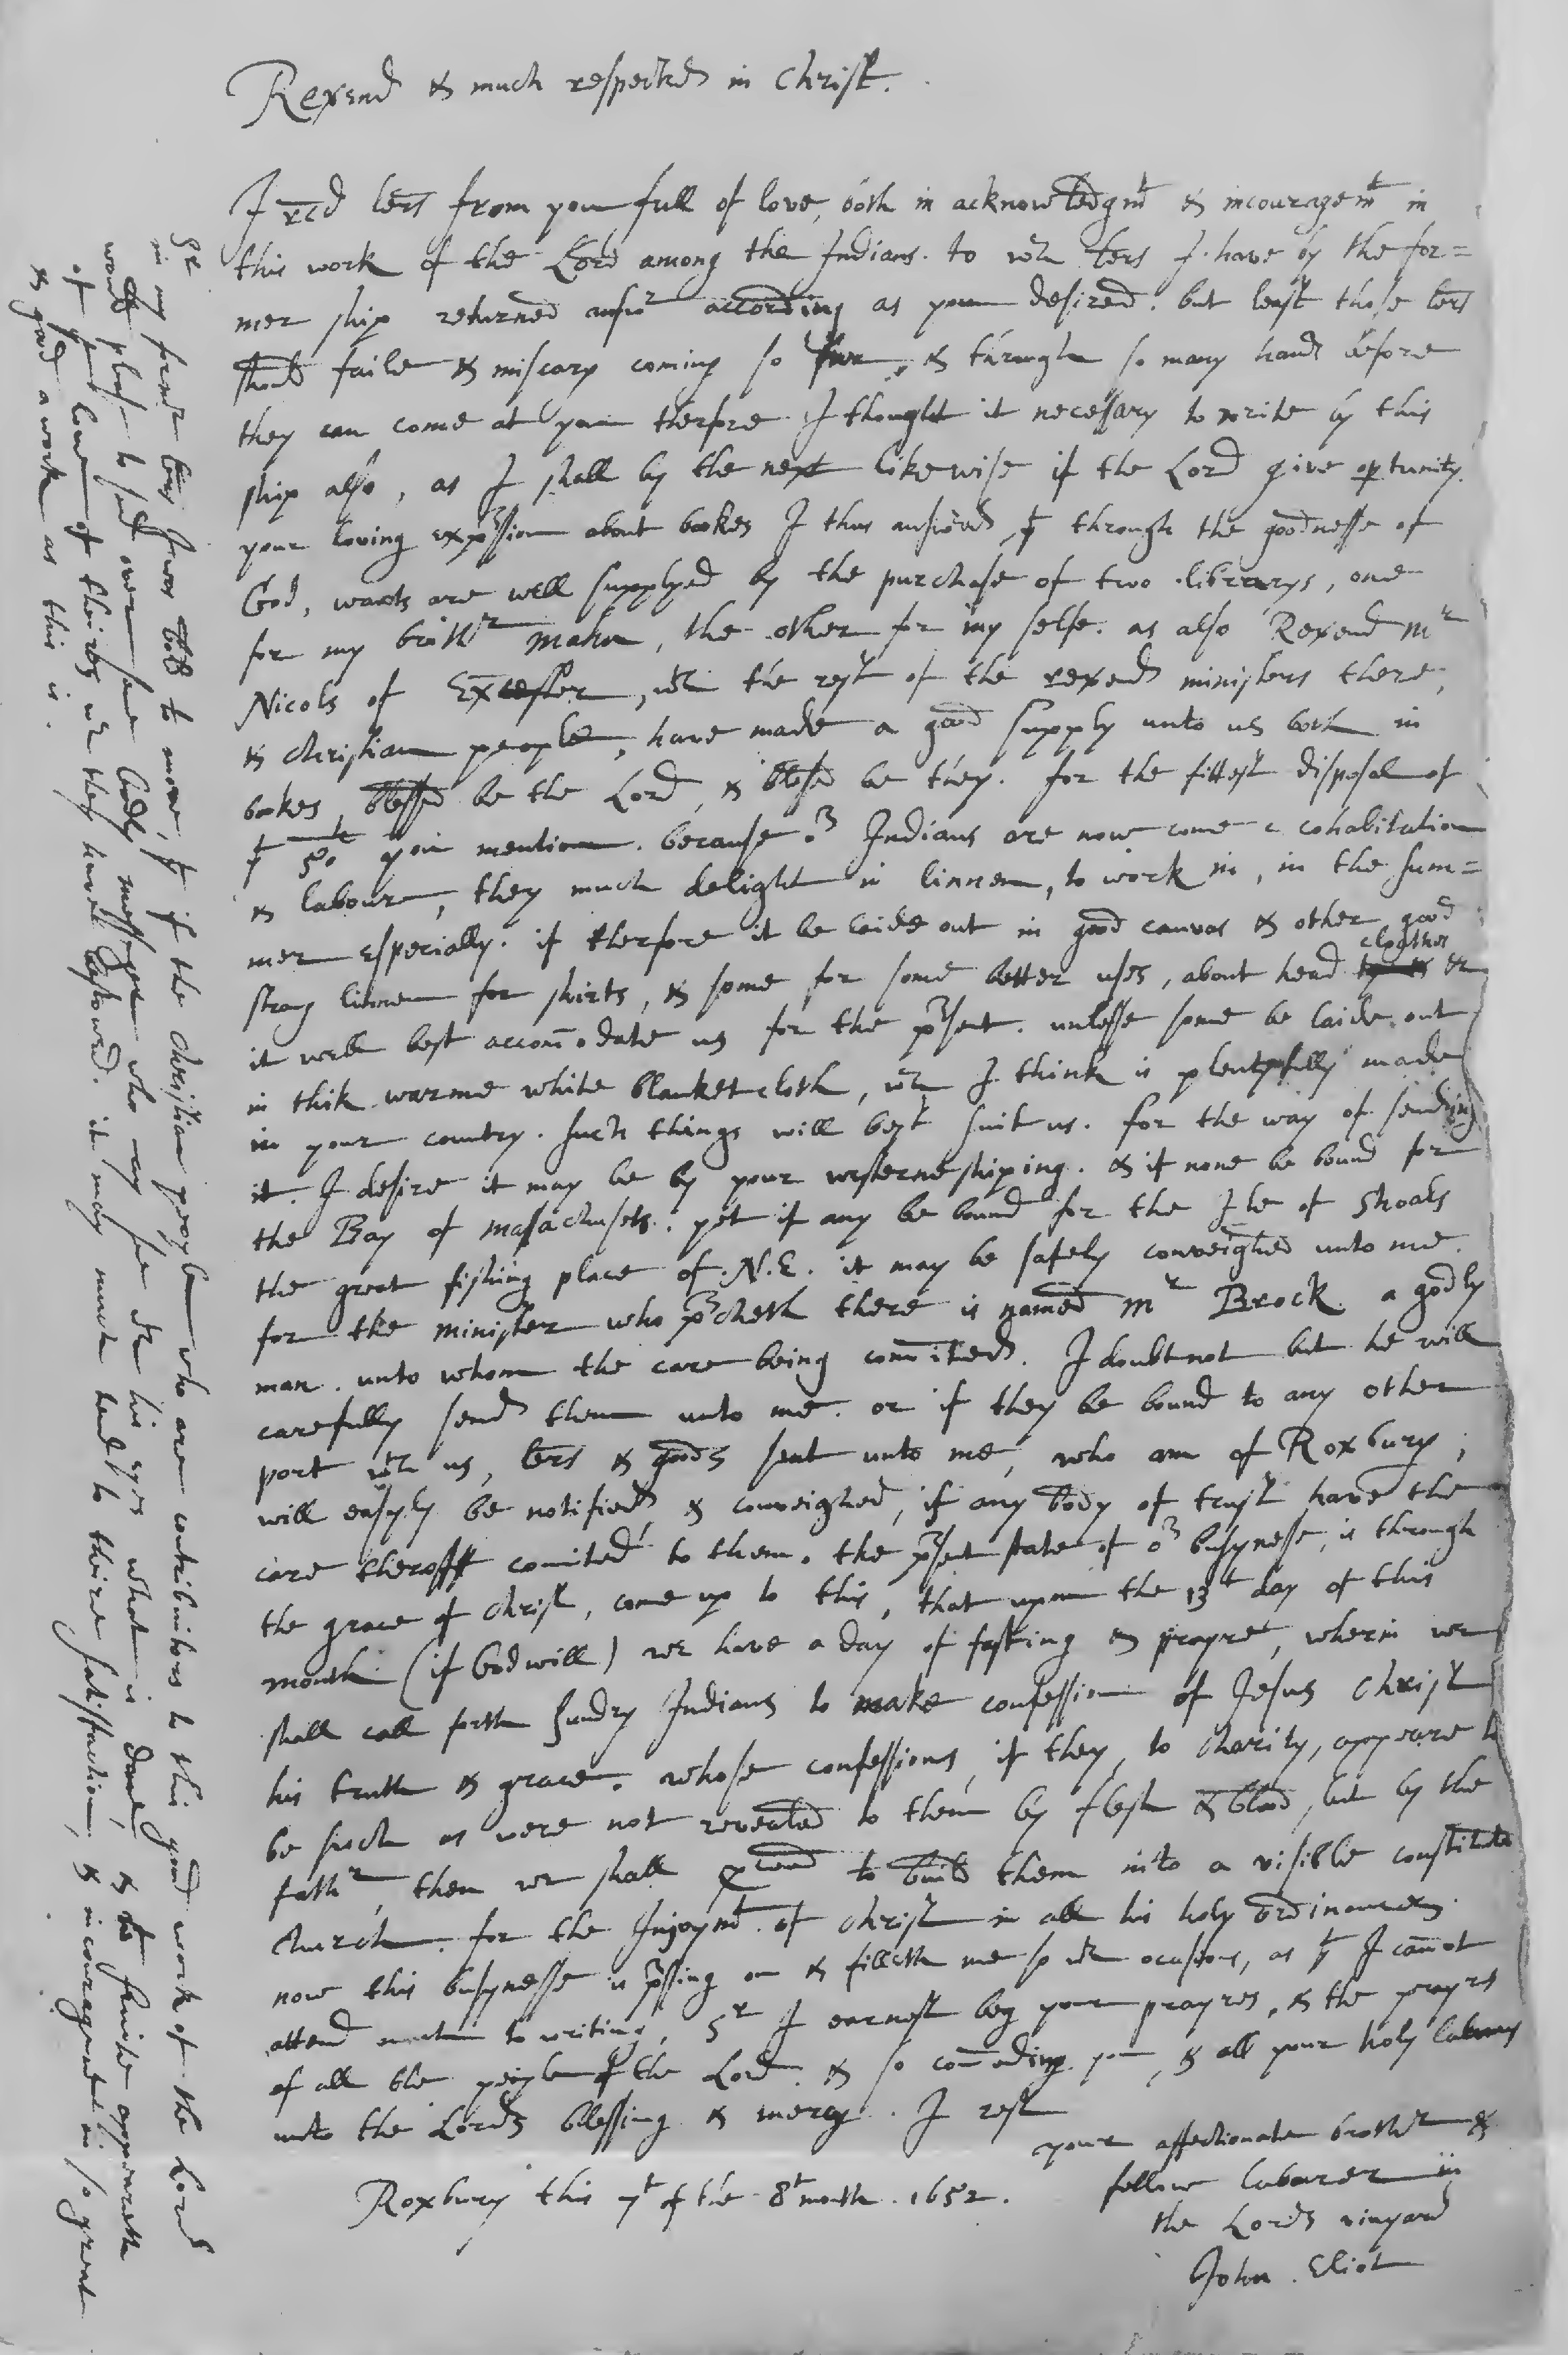 Reverend & much respected in Christ.
I rcd lers from you full of love, both in acknowledgmt & incouragemt in
this work of the Lord among the Indians. to wch lers I have by the for=
mer ship returned answr according as you desired. but least those lers
should faile & miscary coming so farr, & through so many hands before
they can come at you therfore I thought it necessary to write by this
ship also, as I shall by the next likewise if the Lord give optunity.
your loving expssion about bookes I thus answered, yt through the goodnesse of
God, wants are well supplyed by the purchase of two librarys, one
for my brothr Mahu, the other for my selfe. as also Reverend mr
Nicols of Excester, wth the rest of the reverend ministers there,
& christian people, have made a good supply unto us both in
bookes, blessed be the Lord, & blessed be they. for the fittest disposal of
yt 50l you mention. because or Indians are now come to cohabitation
& labour, they much delight in linnen, to work in, in the sum=
mer especially. if therfore it be laide out in good canvas & other good
strong linnen for shirts, & some for some better uses, about head clothes &c
it will best accomodate us for the psent. unlesse some be laide out
in thik warme white blanket cloth, wch I think is plentyfully made
in your country. such things will best suit us. for the way of sending
it. I desire it may be by your westerne shiping. & if none be bound for
the Bay of Masachusets. yet if any be bound for the Ile of Shoals
the great fishing place of N.E. it may be safely conveighed unto me.
for the minister who pcheth there is named mr Brock. a godly
man. unto whom the care being comited. I doubt not but he will
carefully send them unto me. or if they be bound to any other
port wth us, lers & goods sent unto me, who am of Roxbury,
will easyly be notified & conveighed, if any body of trust have the
care theroff comited to them. the psent state of or busynesse, is through
the grace of christ, come up to this, that upon the 13t day of this
month (if God will) we have a day of fasting & prayre, wherin we
shall call forth sundry Indians to make confession of Jesus Christ
his truth & grace. whose confessions, if they, to charity, appeare to
be such as were not revealed to them by flesh & blood, but by the
fathr, then we shall pceed to build them into a visible constituted
church. for the Injoymt of christ in all his holy ordinances.
now this busynesse is pssing on & filleth me so wth ocasions, as yt I cannot
attend much to writing. Sr I earnest beg your prayres, & the prayrs
of all the people of the Lord. & so comending you, & all your holy labours
unto the Lords blessing & mercy. I rest
your affectionate brother &
fellow labourer in
the Lords vinyard
John Eliot
Roxbury this 7t of the 8t month. 1652.
Sr
in my formr lers I was bold to move, yt if the christian people who are contributors to this good work of the Lord
would please to send over some Godly messenger who may see wth his eyes what is done, & wt fruite appeareth
of yt love of theires wch they have bestowed. it may much tend to theire satisfaction, & incouragement in so great
& good a work as this is.